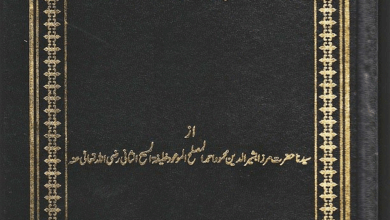 از
سیدنا حضرت مرزا بشیر الدین محمود احمد المصلح الموعود خلیفۃ المسیح الثانی رضی اللہ تعالیٰ عنہ